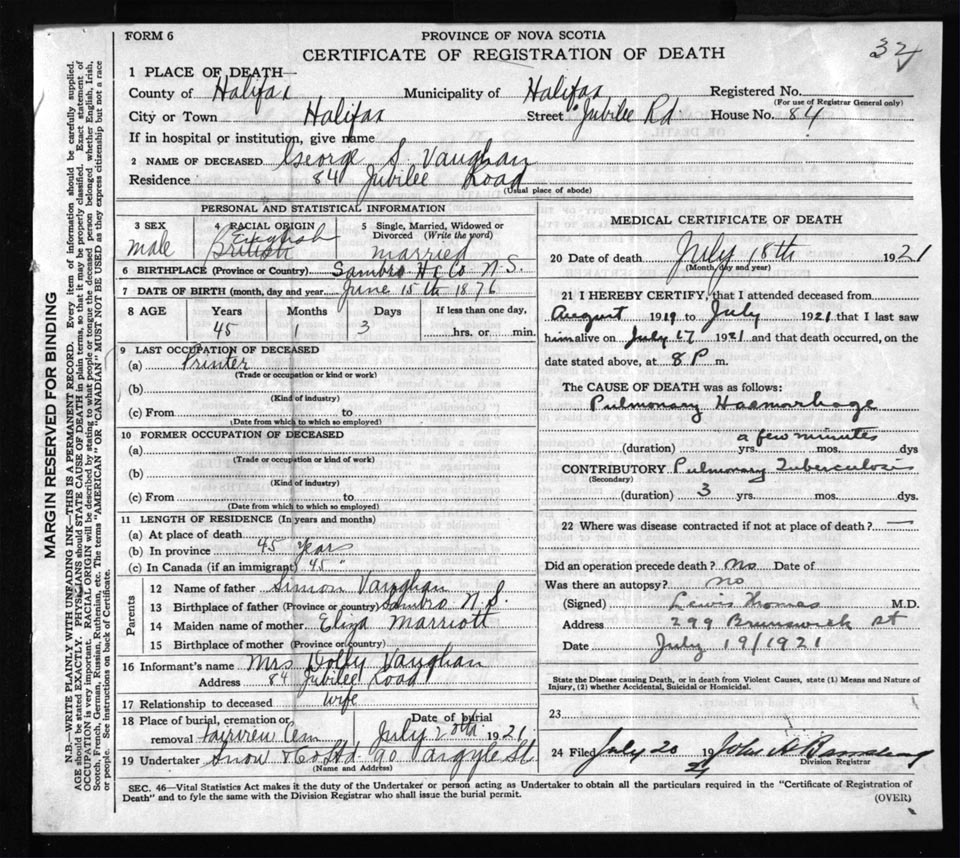 FORM 6
PROVINCE OF NOVA SCOTIA
CERTIFICATE OF REGISTRATION OF DEATH
32
1 PLACE OF DEATH—
County of Halifax Municipality of Halifax Registered No.
(For use of Registrar General only)
City or Town Halifax Street Jubilee Rd House No. 84
If in hospital or institution, give name
2 NAME OF DECEASED George S. Vaughan
Residence 84 Jubilee Road
(Usual place of abode)
PERSONAL AND STATISTICAL INFORMATION
3 SEX male
4 RACIAL ORIGIN English British
5 Single, Married, Widowed or Divorced (Write the word) married
6 BIRTHPLACE (Province or Country) Sambro Hx Co N.S.
7 DATE OF BIRTH (month, day and year) June 15th 1876
8 AGE Years Months Days If less than one day,
45 1 3 hrs. or min.
9 LAST OCCUPATION OF DECEASED
(a) Printer
(Trade or occupation or kind of work)
(b)
(Kind of industry)
(c) From to
(Date from which to which so employed)
10 FORMER OCCUPATION OF DECEASED
(a)
(Trade or occupation or kind of work)
(b)
(Kind of industry)
(c) From to
(Date from which to which so employed)
11 LENGTH OF RESIDENCE (In years and months)
(a) At place of death
(b) In province 45 years
(c) In Canada (if an immigrant) 45 "
Parents
12 Name of father Simon Vaughan
13 Birthplace of father (Province or country) Sambro N.S.
14 Maiden name of mother Eliza Marriott
15 Birthplace of mother (Province or country)
16 Informant's name Mrs Dolby Vaughan
Address 84 Jubilee Road
17 Relationship to deceased wife
18 Place of burial, cremation or removal Fairview Cem
Date of burial July 20th 1921
19 Undertaker Snow & Co Ltd 90 Argyle St
(Name and Address)
MEDICAL CERTIFICATE OF DEATH
20 Date of death July 18th 1921
(Month, day and year)
21 I HEREBY CERTIFY, that I attended deceased from
August 1919 to July 1921 that I last saw
him alive on July 17 1921 and that death occurred, on the
date stated above, at 8 P m.
The CAUSE OF DEATH was as follows:
Pulmonary Haemorhage
a few minutes
(duration) yrs. mos. dys
CONTRIBUTORY Pulmonary Tuberculosis
(Secondary)
(duration) 3 yrs. mos. dys.
22 Where was disease contracted if not at place of death? —
Did an operation precede death? no Date of
Was there an autopsy? no
(Signed) Lewis Thomas M.D.
Address 299 Brunswick St
Date July 19/1921
State the Disease causing Death, or in death from Violent Causes, state (1) Means and Nature of
Injury, (2) whether Accidental, Suicidal or Homicidal.
23
24 Filed July 20 19 21 John A.
Division Registrar
SEC. 46—Vital Statistics Act makes it the duty of the Undertaker or person acting as Undertaker to obtain all the particulars required in the "Certificate of Registration of
Death" and to fyle the same with the Division Registrar who shall issue the burial permit.
(OVER)
MARGIN RESERVED FOR BINDING
N.B.—WRITE PLAINLY WITH UNFADING INK—THIS IS A PERMANENT RECORD. Every item of information should be carefully supplied.
AGE should be stated EXACTLY. PHYSICIANS should STATE CAUSE OF DEATH in plain terms, so that it may be properly classified. Exact statement of
OCCUPATION is very important. RACIAL ORIGIN will be described by stating to what people or tongue the deceased person belonged whether English, Irish,
Scotch, French, German, Russian, Ruthenian, etc. The terms "AMERICAN" OR "CANADIAN" MUST NOT BE USED as they express citizenship but not a race
of people. See instructions on back of Certificate.